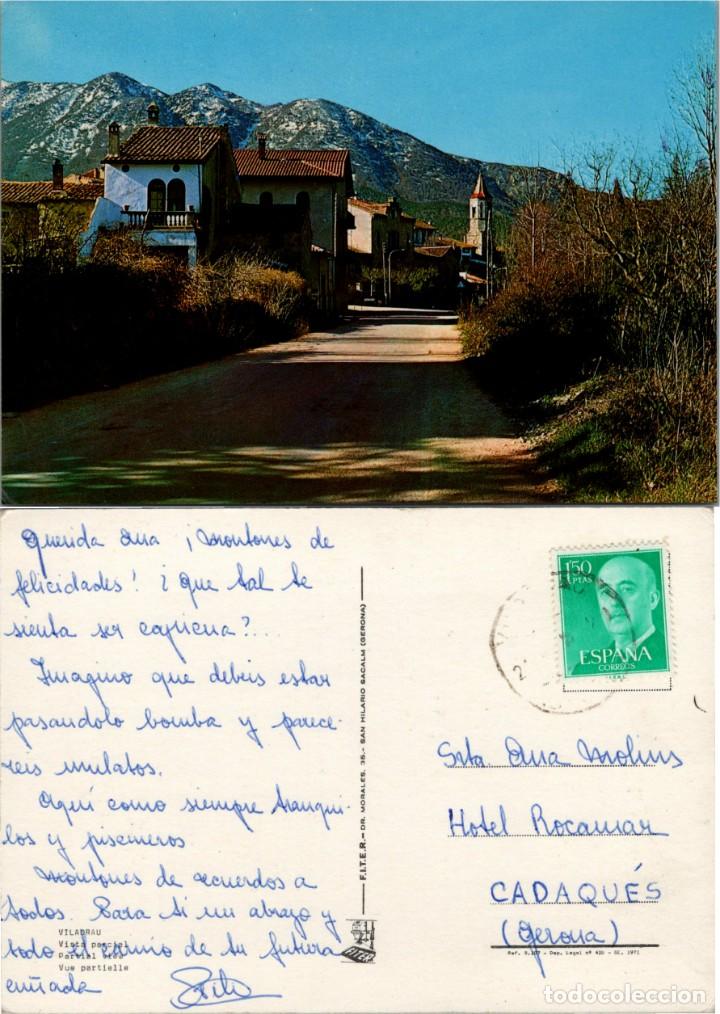 Querida Ana ¡Montones de
felicidades! ¿que tal te
sienta ser
Imagino que debeis estar
pasandolo bomba y parece-
reis mulatos.
Aquí como siempre tranqui-
los y piscineros
Montones de recuerdos a
todos. Para ti un abrazo y
todo el cariño de tu futura
cuñada
VILADRAU
Vista parcial
Partial view
Vue partielle
F.I.T.E.R.- DR. MORALES, 35.- SAN HILARIO SACALM (GERONA)
FITER
1'50
PTAS
ESPAÑA
CORREOS
Srta. Ana Molins
Hotel Rocamar
CADAQUÉS
(Gerona)
Dep. Legal nº 420 - GE. 1971
todocoleccion